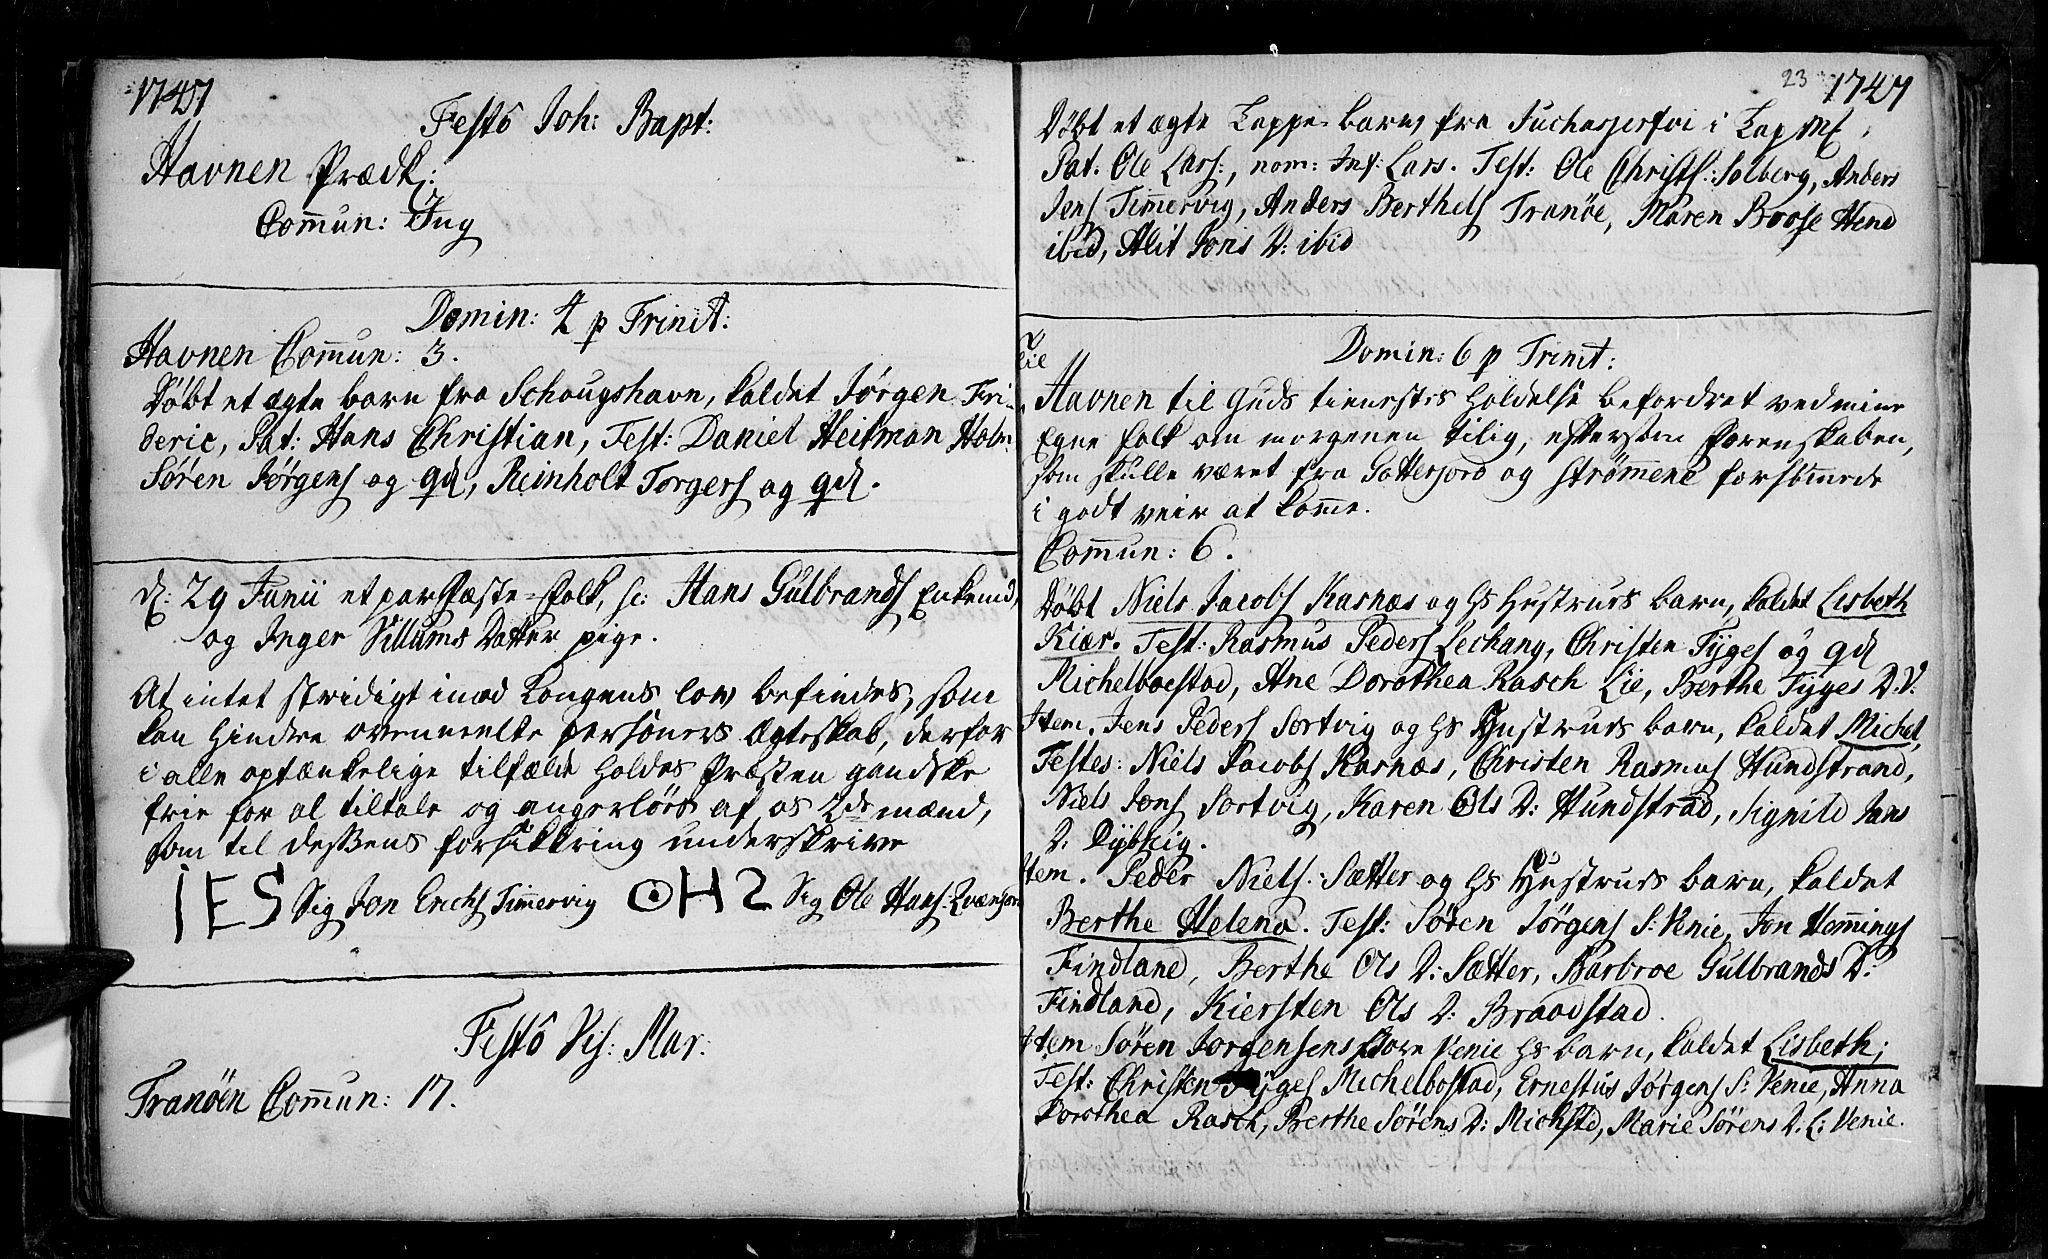 1747
Festô Joh: Bapt:
Havnen Prædk:
Com̄un: Ing
Domin: 4 p Trinit:
Havnen Com̄un: 3.
Døbt et ægte barn fra Schougshavn, kaldet Jørgen Fri-
deric, Pat: Hans Christian, Test: Daniel Heitman Holm
Søren Jørgens og qd, Reinholt Torgers og qd.
d: 29 Junii et par Fæste-Folk, sc: Hans Gulbrands Enkemd,
og Inger Sillums Datter pige.
At intet stridigt imod Kongens lov befindes, som
kan hindre ovenmelte Persôners Ægteskab, derfor
i alle optænkelige tilfælde holdes Præsten gandske
frie for al tiltale og angerløs af os 2de mænd,
som til dessens forsikkring underskrive
IES Sig Jon Erichs Tim̄ervig OHS Sig Ole Hans: Qvænsord
Festô Vis: Mar:
Tranöen Com̄un: 17.
23 1747
Døbt et ægte Lappe-barn fra i Lapm
Pat. Ole Lars:, nom: Inf: Lars. Test: Ole Christs: Solberg, Anders
Jens Tim̄ervig, Anders Berthels Tranöe, Maren Boose Hend
ibid, Alit Jons D: ibid
Domin: 6 p Trinit:
Havnen til Guds tienestes holdelse befordret ved mine
Egne folk om morgenen tilig, eftersom Forenskaben,
som skulle været fra Gatterjord og Strøm̄ene forsømede
i godt veir at kom̄e.
Com̄un: 6.
Døbt Niels Jacobs Kasnæs og hs Hustrues barn, kaldet Lisbeth
Kiær. Test: Rasmus Peders Lechang, Christen Tyges og qd
Michelboestad, Ane Dorothea Rasch Lie, Berthe Tygges D: V:
Item. Jens Peders Sortvig og hs Hustrues barn, kaldet Michel,
Testes: Niels Jacobs Kasnæs, Christen Rasmus Hundstrand,
Niels Jons Sortvig, Karen Ols D: Hundstrad, Signild Jans
D: Dybvig.
Item. Peder Niels: Sætter og hs Hustrues barn, kaldet
Berthe Helena. Test: Søren Jørgens S: Venie, Jon Hem̄ings
Findland, Berthe Ols D: Sætter, Barbroe Gulbrands D:
Findland, Kiersten Ols D: Braadstad.
Item Søren Jorgensens Store Venie hs barn, kaldet Lisbeth;
Test: Christen Tyges Michelbostad, Ernestus Jørgens S: Venie, Anna
Dorothea Rasch, Berthe Sörens D: Michstd, Marie Sörens D. L: Venie.